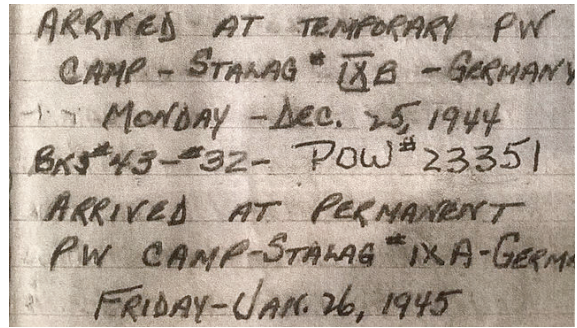 ARRIVED AT TEMPORARY PW
CAMP - STALAG # IXB - GERMANY
MONDAY - DEC. 25, 1944
BKS #43 - #32 - POW # 23351
ARRIVED AT PERMANENT
PW CAMP - STALAG # IXA - GERMA
FRIDAY - JAN. 26, 1945